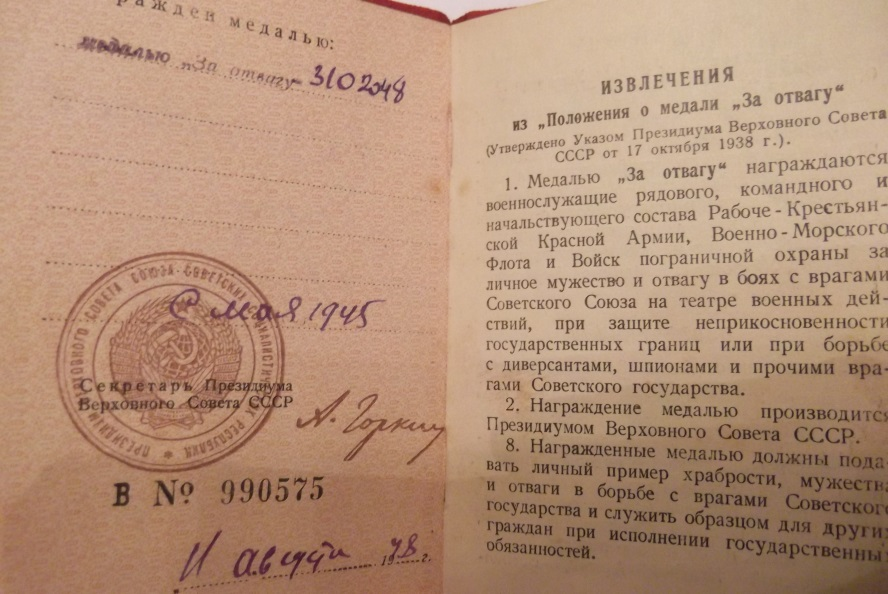 ражден медалью:
медалью „За отвагу“ 3102048
мая 1945
Секретарь Президиума
Верховного Совета СССР
А. Горкин
В № 990575
11 августа 1948 г.
ИЗВЛЕЧЕНИЯ
из „Положения о медали „За отвагу“
(Утверждено Указом Президиума Верховного Совета
СССР от 17 октября 1938 г.).
1. Медалью „За отвагу“ награждаются
военнослужащие рядового, командного и
начальствующего состава Рабоче-Крестьян-
ской Красной Армии, Военно-Морского
Флота и Войск пограничной охраны за
личное мужество и отвагу в боях с врагами
Советского Союза на театре военных дей-
ствий, при защите неприкосновенности
государственных границ или при борьбе
с диверсантами, шпионами и прочими вра-
гами Советского государства.
2. Награждение медалью производится
Президиумом Верховного Совета СССР.
8. Награжденные медалью должны пода-
вать личный пример храбрости, мужеств
и отваги в борьбе с врагами Советског
государства и служить образцом для други
граждан при исполнении государственны
обязанностей.